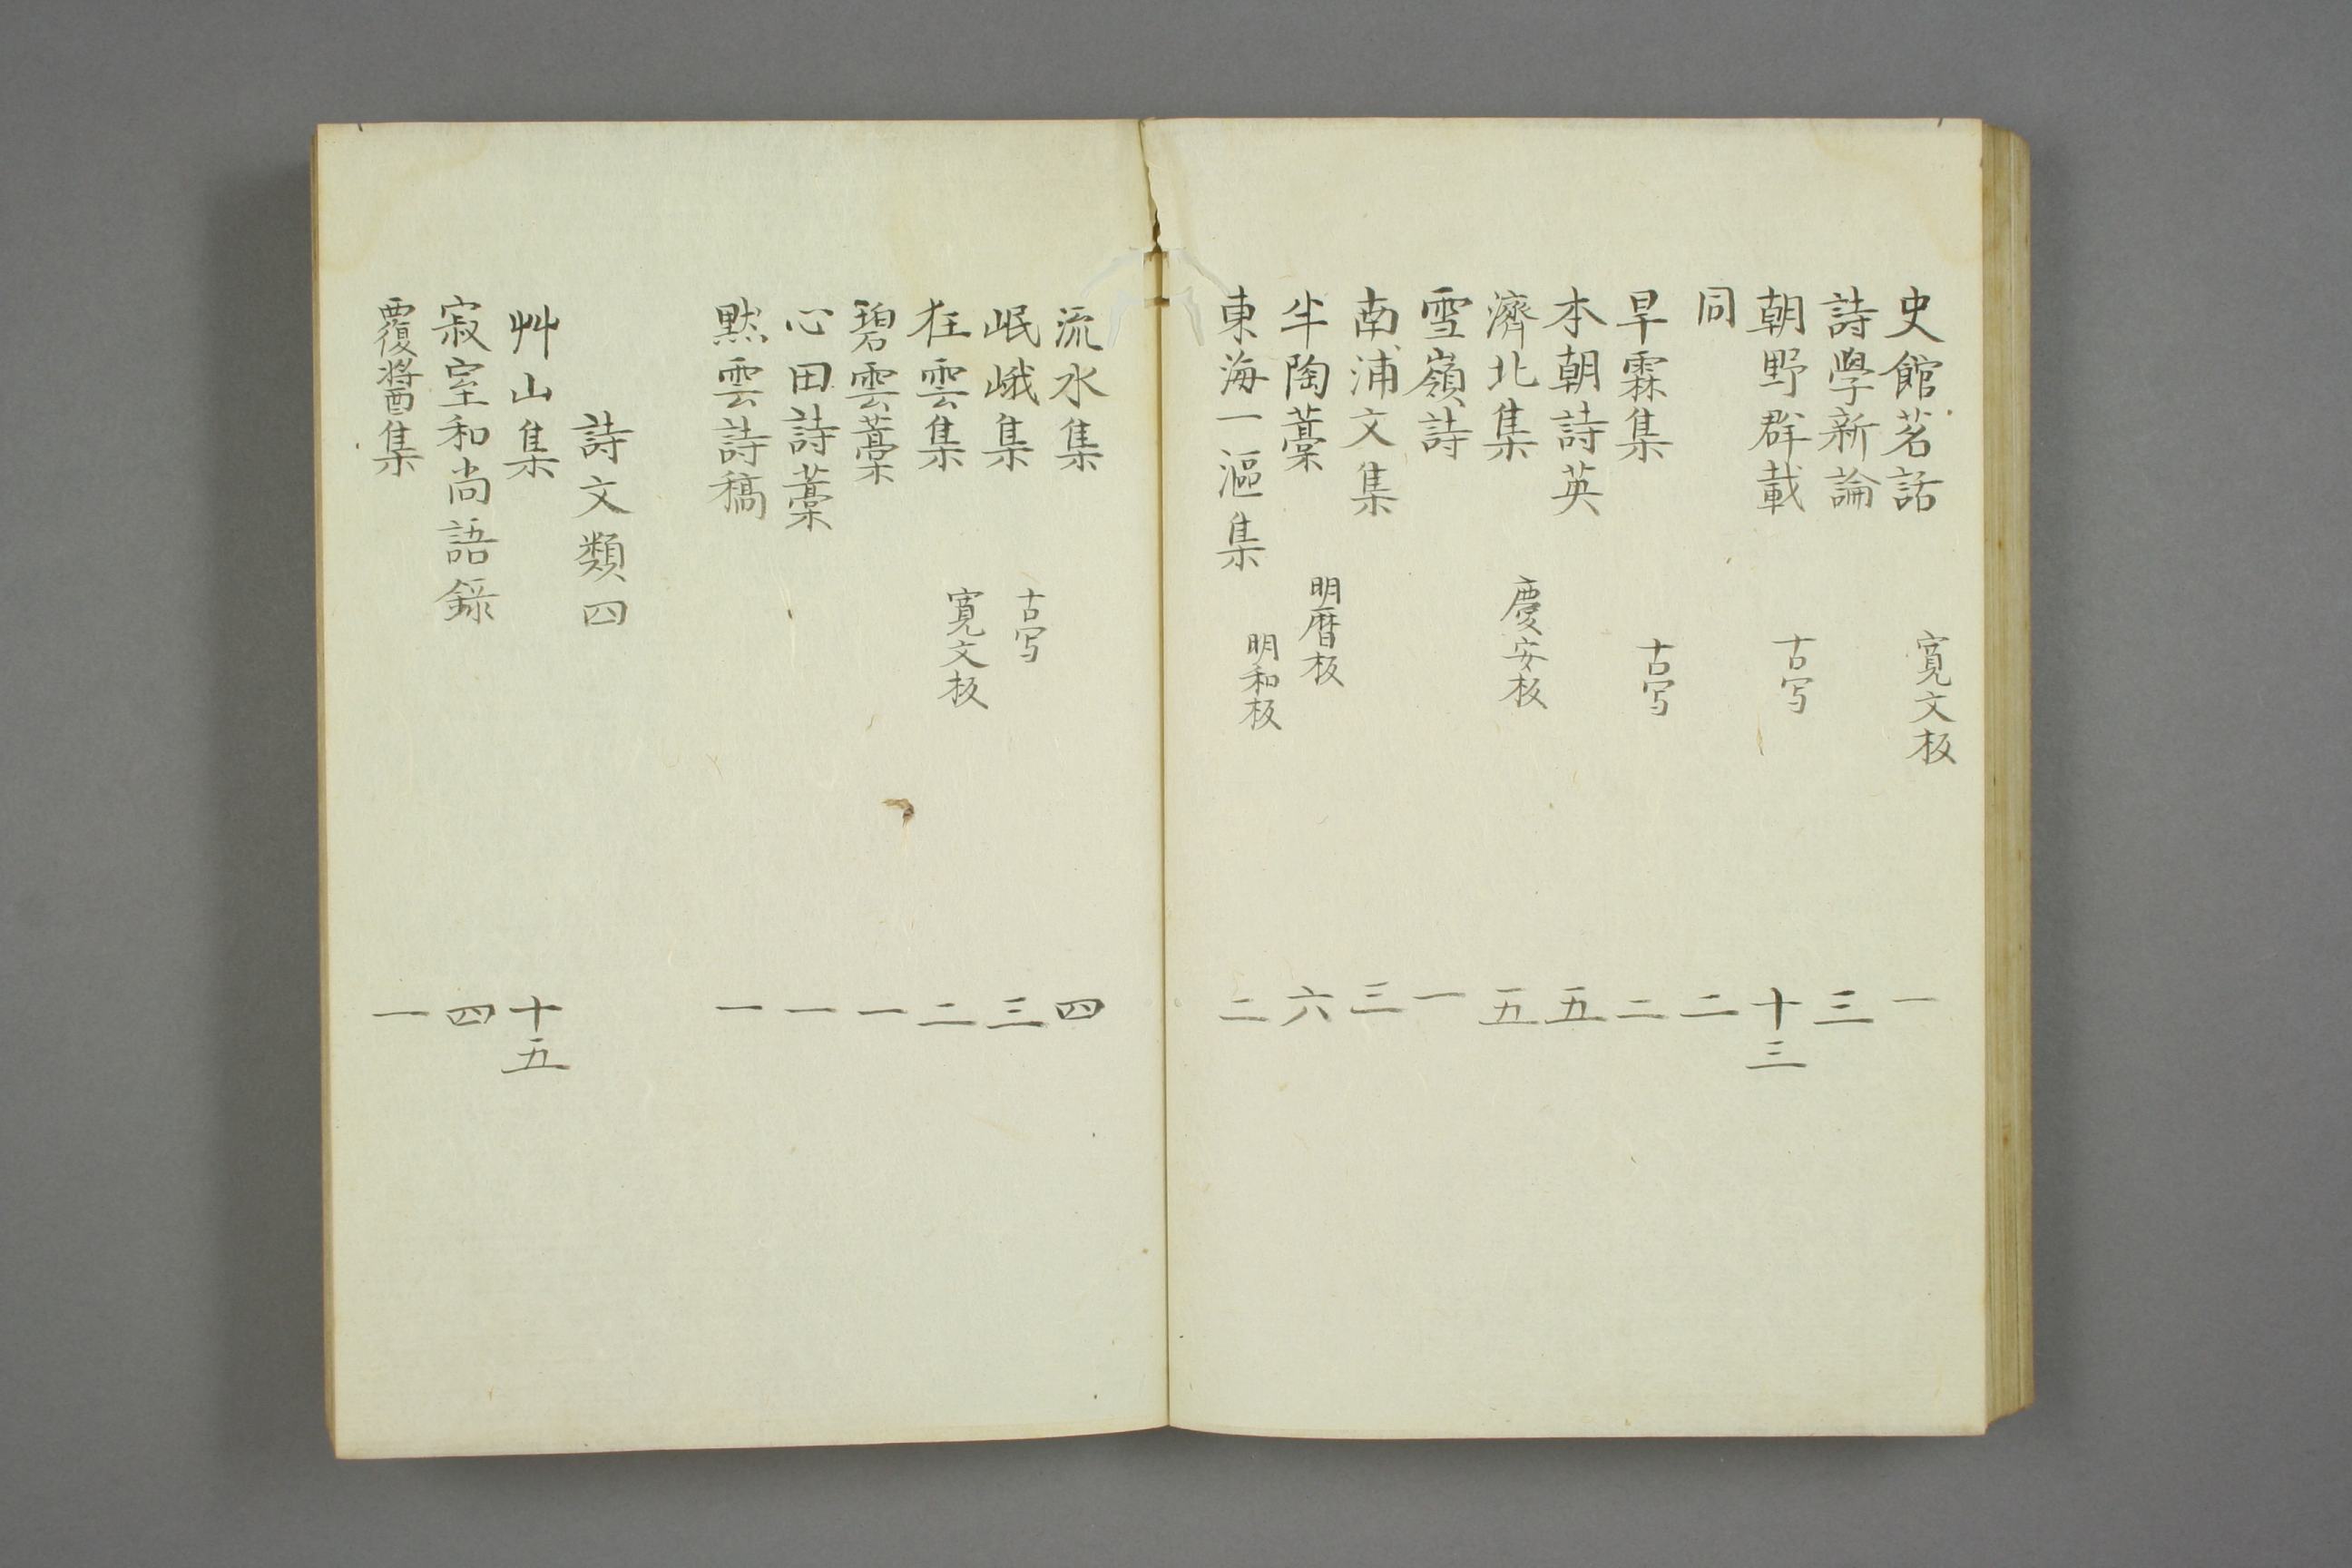 史館茗話 寛文板 一
詩學新論 三
朝野群載 古写 十三
同 二
旱霖集 古写 二
本朝詩英 五
濟北集 慶安板 五
雪嶺詩 一
南浦文集 三
半陶藁 明暦板 六
東海一漚集 明和板 二
流水集 四
岷峨集 古写 三
狂雲集 寛文板 二
碧雲藁 一
心田詩藁 一
黙雲詩稿 一
詩文類四
艸山集 十五
寂室和尚語録 四
覆醤集 一